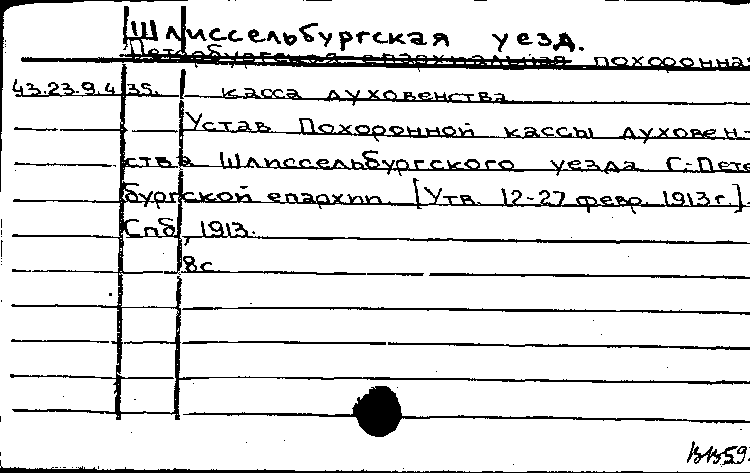 Шлиссельбургская уезд.
Петербургская епархиальная похоронная
43.23.9.4 35. касса духовенства
Устав Похоронной кассы духовен-
ства Шлиссельбургского уезда С.-Пете
бургской епархии. [Утв. 12-27 февр. 1913 г.].
Спб, 1913.
8 с.